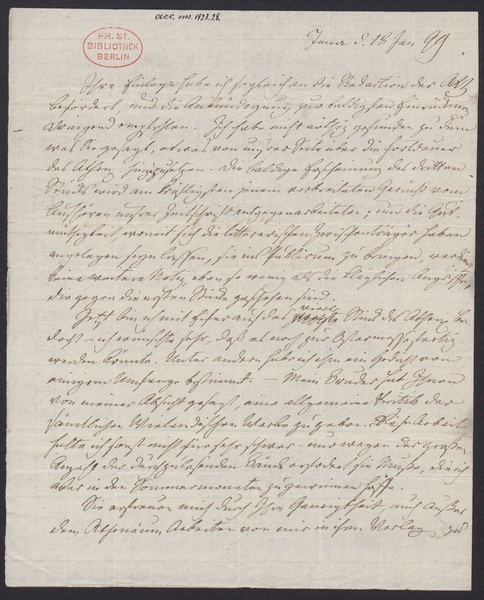 acc. ms. 1928.28.
PR. ST.
BIBLIOTHEK
BERLIN
Jena d. 18 Jan 99
Ihre Einlage habe ich sogleich an die Redaction der ALZ
befördert, und die Ankündigung zur baldigen Einrückung
dringend empfohlen. Ich habe nicht nöthig gefunden zu dem
was Sie gesagt, etwas von unsrer Seite über die Fortdauer
des Athen. hinzuzusetzen. Die baldige Erscheinung des dritten
Stücks wird am kräftigsten jenem verbreiteten Gerücht vom
Aufhören unsrer Zeitschrift entgegenarbeiten; und die Gut
müthigkeit womit sich die litterarischen haben
angelegen seyn lassen, sie ins Publicum zu bringen, verdient
keine weitere Notiz, eben so wenig als die kläglichen Angriffe
die gegen die ersten Stücke geschehen sind.
Jetzt bin ich mit Eifer auf das vierte Stück des Athen. be
dacht – ich wünschte sehr, daß es noch zur Ostermesse fertig
werden könnte. Unter andern habe ich ein Gedicht von
einigem Umfange bestimmt. – Mein Bruder hat Ihnen
von meiner Absicht gesagt, eine allgemeine Kritik der
sämtlichen Wielandischen Werke zu geben. Diese Arbeit
halte ich sonst nicht für sehr schwer – nur wegen der großen
Anzahl der durchzulesenden Bände erfodert sie Muße, die ich
aber in den Sommermonaten zu gewinnen hoffe.
Sie erfreuen mich durch Ihre Geneigtheit, auch außer
dem Athenäum Arbeiten von mir in Ihren Verlag zu